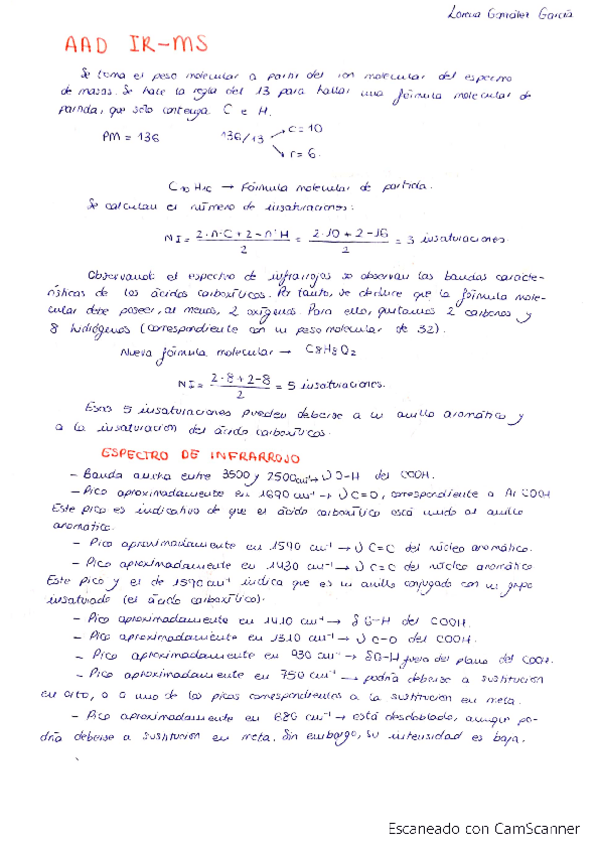 Lorena González García
AAD IR-MS
Se toma el peso molecular a partir del ion molecular del espectro
de masas. Se hace la regla del 13 para hallar una fórmula molecular de
partida, que sólo contenga C e H.
PM = 136 136/13 → C = 10
→ r = 6.
C10 H16 → Fórmula molecular de partida.
Se calculan el número de insaturaciones:
NI = 2·nºC + 2 - nºH / 2 = 2·10 + 2 - 16 / 2 = 3 insaturaciones
Observando el espectro de infrarrojos se observan las bandas caracte-
rísticas de los ácidos carboxílicos. Por tanto, se deduce que la fórmula mole-
cular debe poseer, al menos, 2 oxígenos. Para ello, quitamos 2 carbonos y
8 hidrógenos (correspondiente con un peso molecular de 32).
Nueva fórmula molecular → C8H8O2
NI = 2·8 + 2 - 8 / 2 = 5 insaturaciones.
Esas 5 insaturaciones pueden deberse a un anillo aromático y
a la insaturación del ácido carboxílico.
ESPECTRO DE INFRARROJO
- Banda ancha entre 3500 y 2500 cm⁻¹ → ν O-H del COOH.
- Pico aproximadamente en 1690 cm⁻¹ → ν C=O, correspondiente a Ar COOH
Este pico es indicativo de que el ácido carboxílico está unido al anillo
aromático.
- Pico aproximadamente en 1590 cm⁻¹ → ν C=C del núcleo aromático.
- Pico aproximadamente en 1430 cm⁻¹ → ν C=C del núcleo aromático
Este pico y el de 1590 cm⁻¹ indica que es un anillo conjugado con un grupo
insaturado (el ácido carboxílico).
- Pico aproximadamente en 1410 cm⁻¹ → δ O-H del COOH.
- Pico aproximadamente en 1310 cm⁻¹ → ν C-O del COOH.
- Pico aproximadamente en 930 cm⁻¹ → δ O-H fuera del plano del COOH.
- Pico aproximadamente en 750 cm⁻¹ → podría deberse a sustitución
en orto, o a uno de los picos correspondientes a la sustitución en meta.
- Pico aproximadamente en 680 cm⁻¹ → está desdoblado, aunque po-
dría deberse a sustitución en meta. Sin embargo, su intensidad es baja.
Escaneado con CamScanner